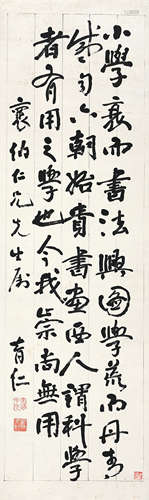 小學衰而書法興圖學蕪而丹青
盛自六朝始貴書畫西人謂科學
者有用之學也今我崇尚無用
襄伯仁兄先生屬 育仁